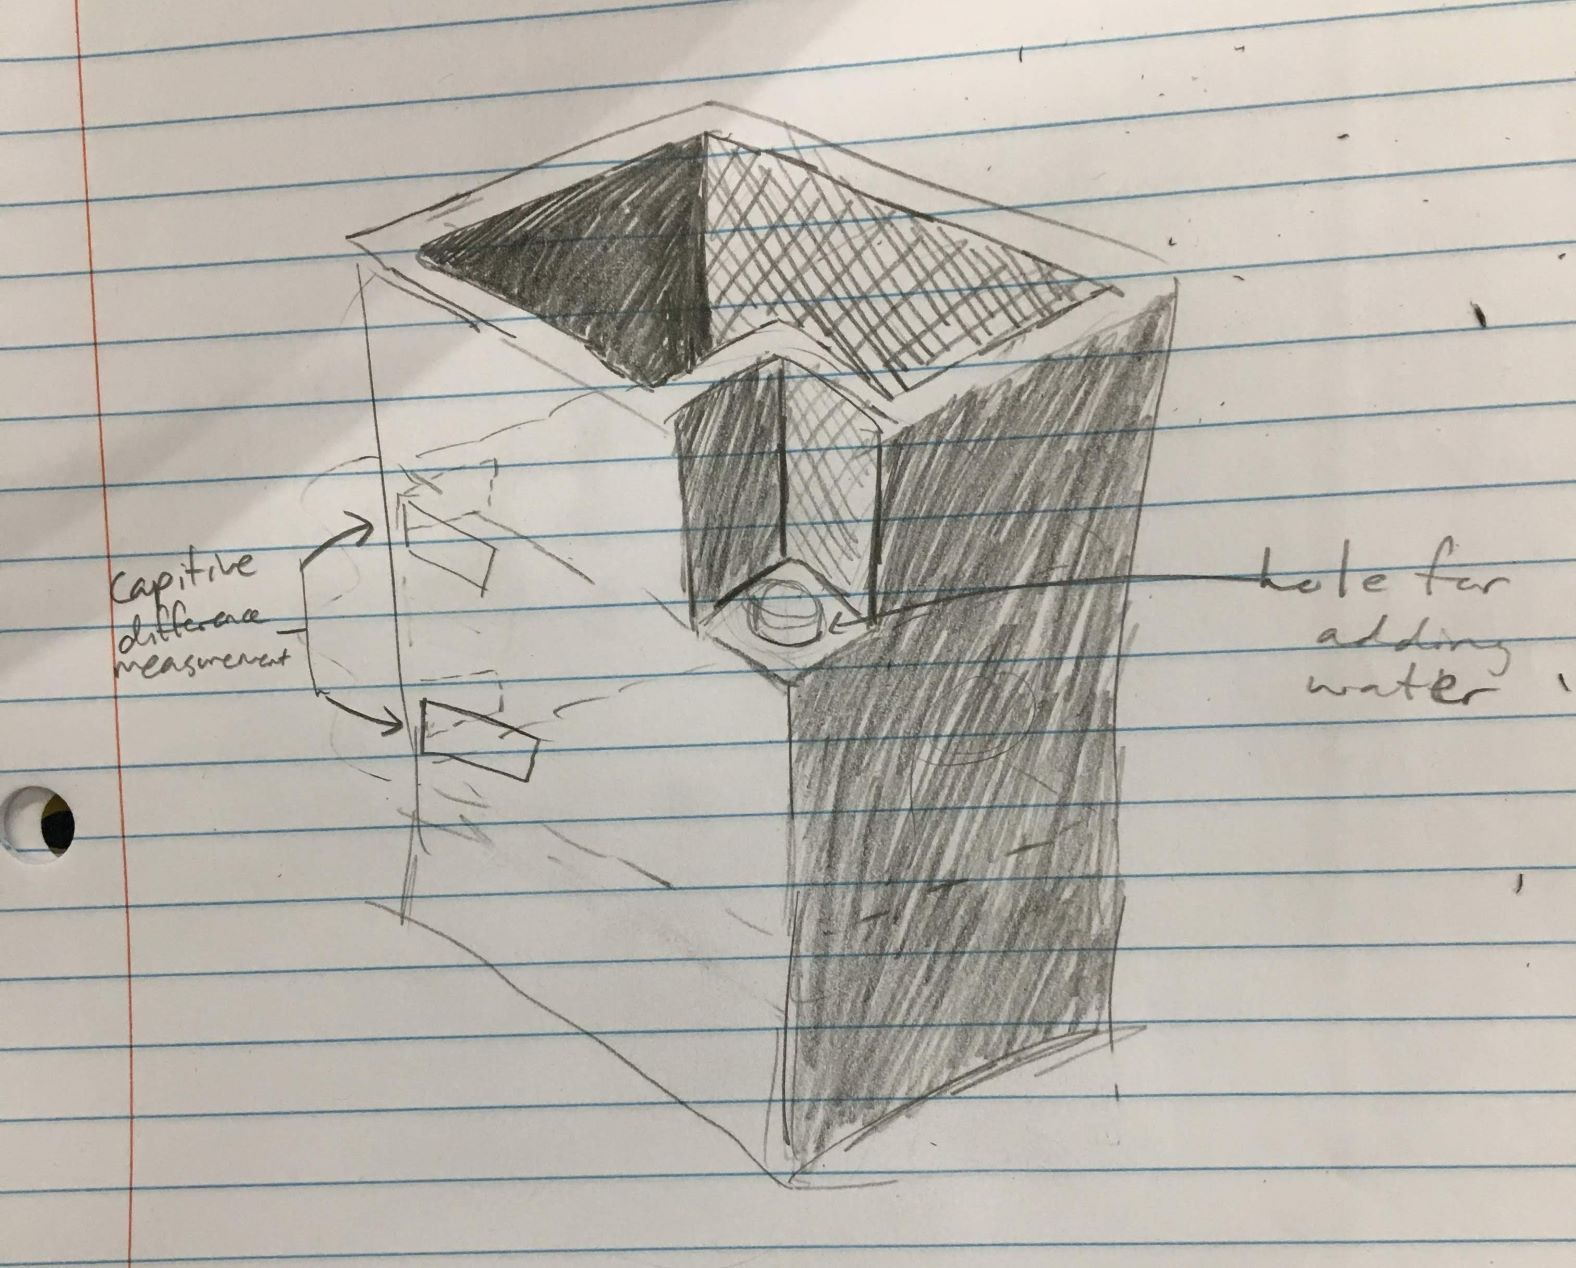 Capitive
difference
measurement
hole for
adding
water